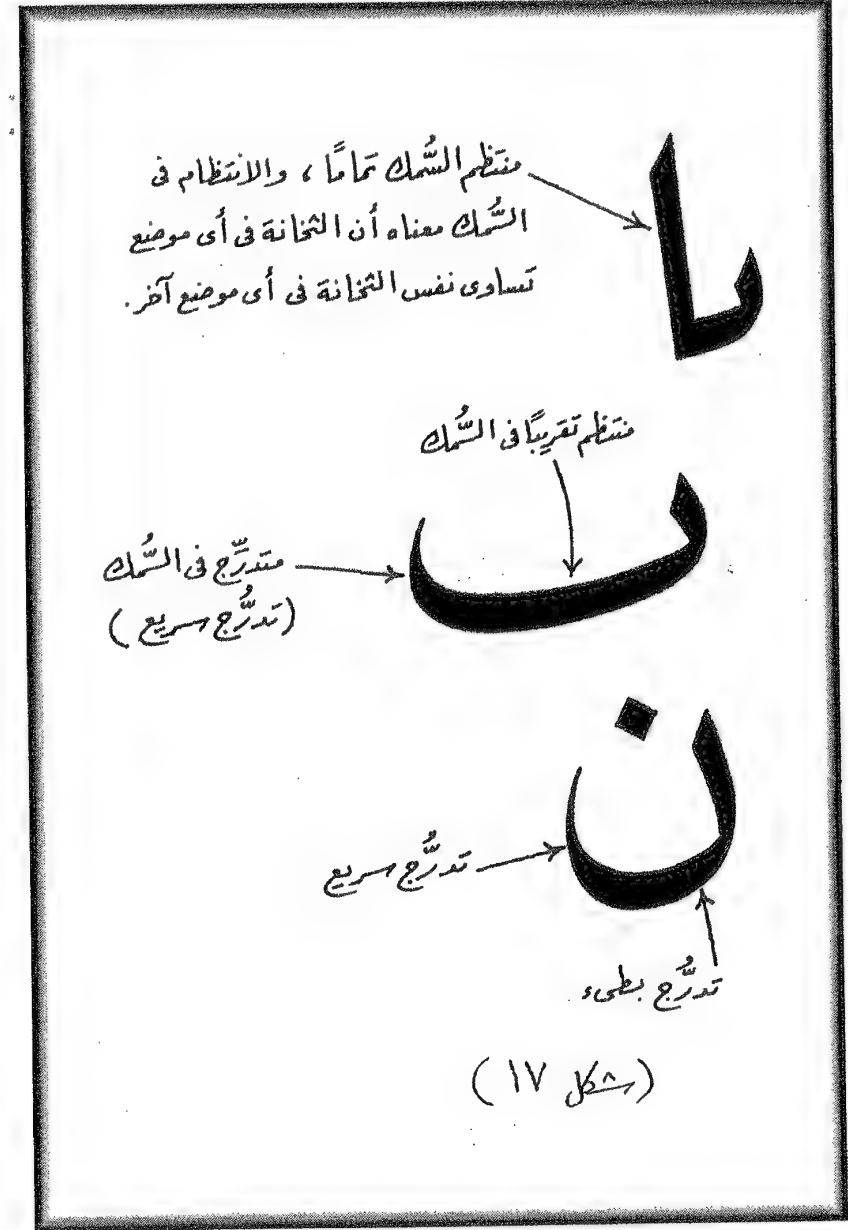 منتظم السُّمك تمامًا ، والانتظام فى
السُّمك معناه أن الثخانة فى أى موضع
تساوى نفس الثخانة فى أى موضع آخر .
منتظم تقريبًا فى السُّمك
متدرِّج فى السُّمك
(تدرُّج سريع)
ن
تدرُّج سريع
تدرُّج بطىء
(شكل ١٧)